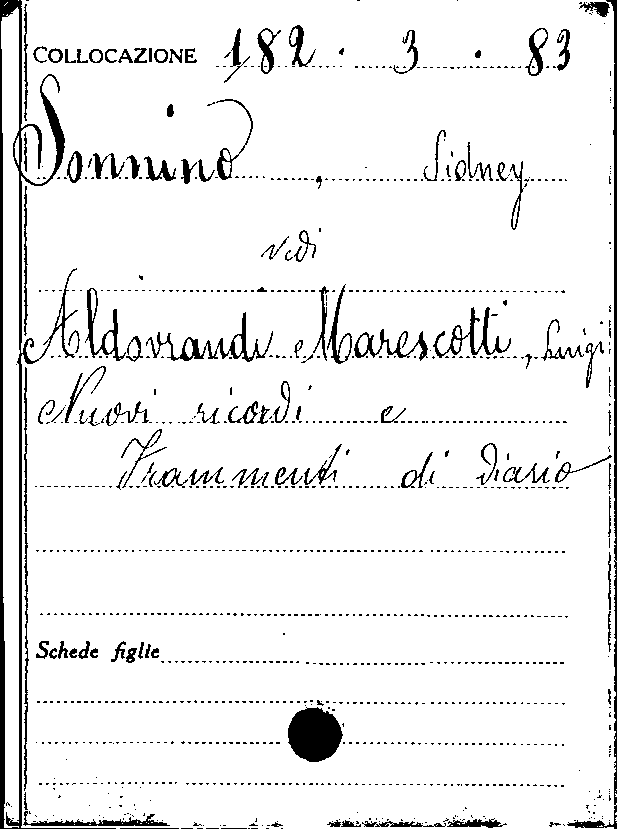 COLLOCAZIONE 182 · 3 · 83
Sonnino, Sidney
vedi
Aldovrandi Marescotti, Luigi
Nuovi ricordi e
Frammenti di Diario
Schede figlie